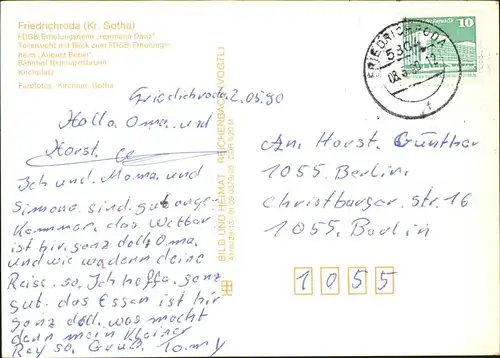 Friedrichroda (Kr. Gotha)
FDGB-Erholungsheim „Hermann Danz"
Teilansicht mit Blick zum FDGB-Erholungs-
heim „August Bebel"
Bahnhof Reinhardsbrunn
Kirchplatz
Farbfotos: Kirchner, Gotha
BILD UND HEIMAT REICHENBACH (VOGTL)
FRIEDRICHRODA
5804
10
Friedichroda 2.05.90
Hallo Oma und
Horst.
Ich und. Mama. und
Simona. sind. gut ange-
kommen. das Wetter
ist hir. ganz doll. Oma.
und wie wa denn deine
Reise. so, Ich hoffe. ganz
gut. das Essen ist hir
ganz doll. was macht
denn mein kleiner
Rey so. Gruß. Tommy
An. Horst. Günther
1055. Berlin.
Christburger. str. 16
1055. Berlin
1055